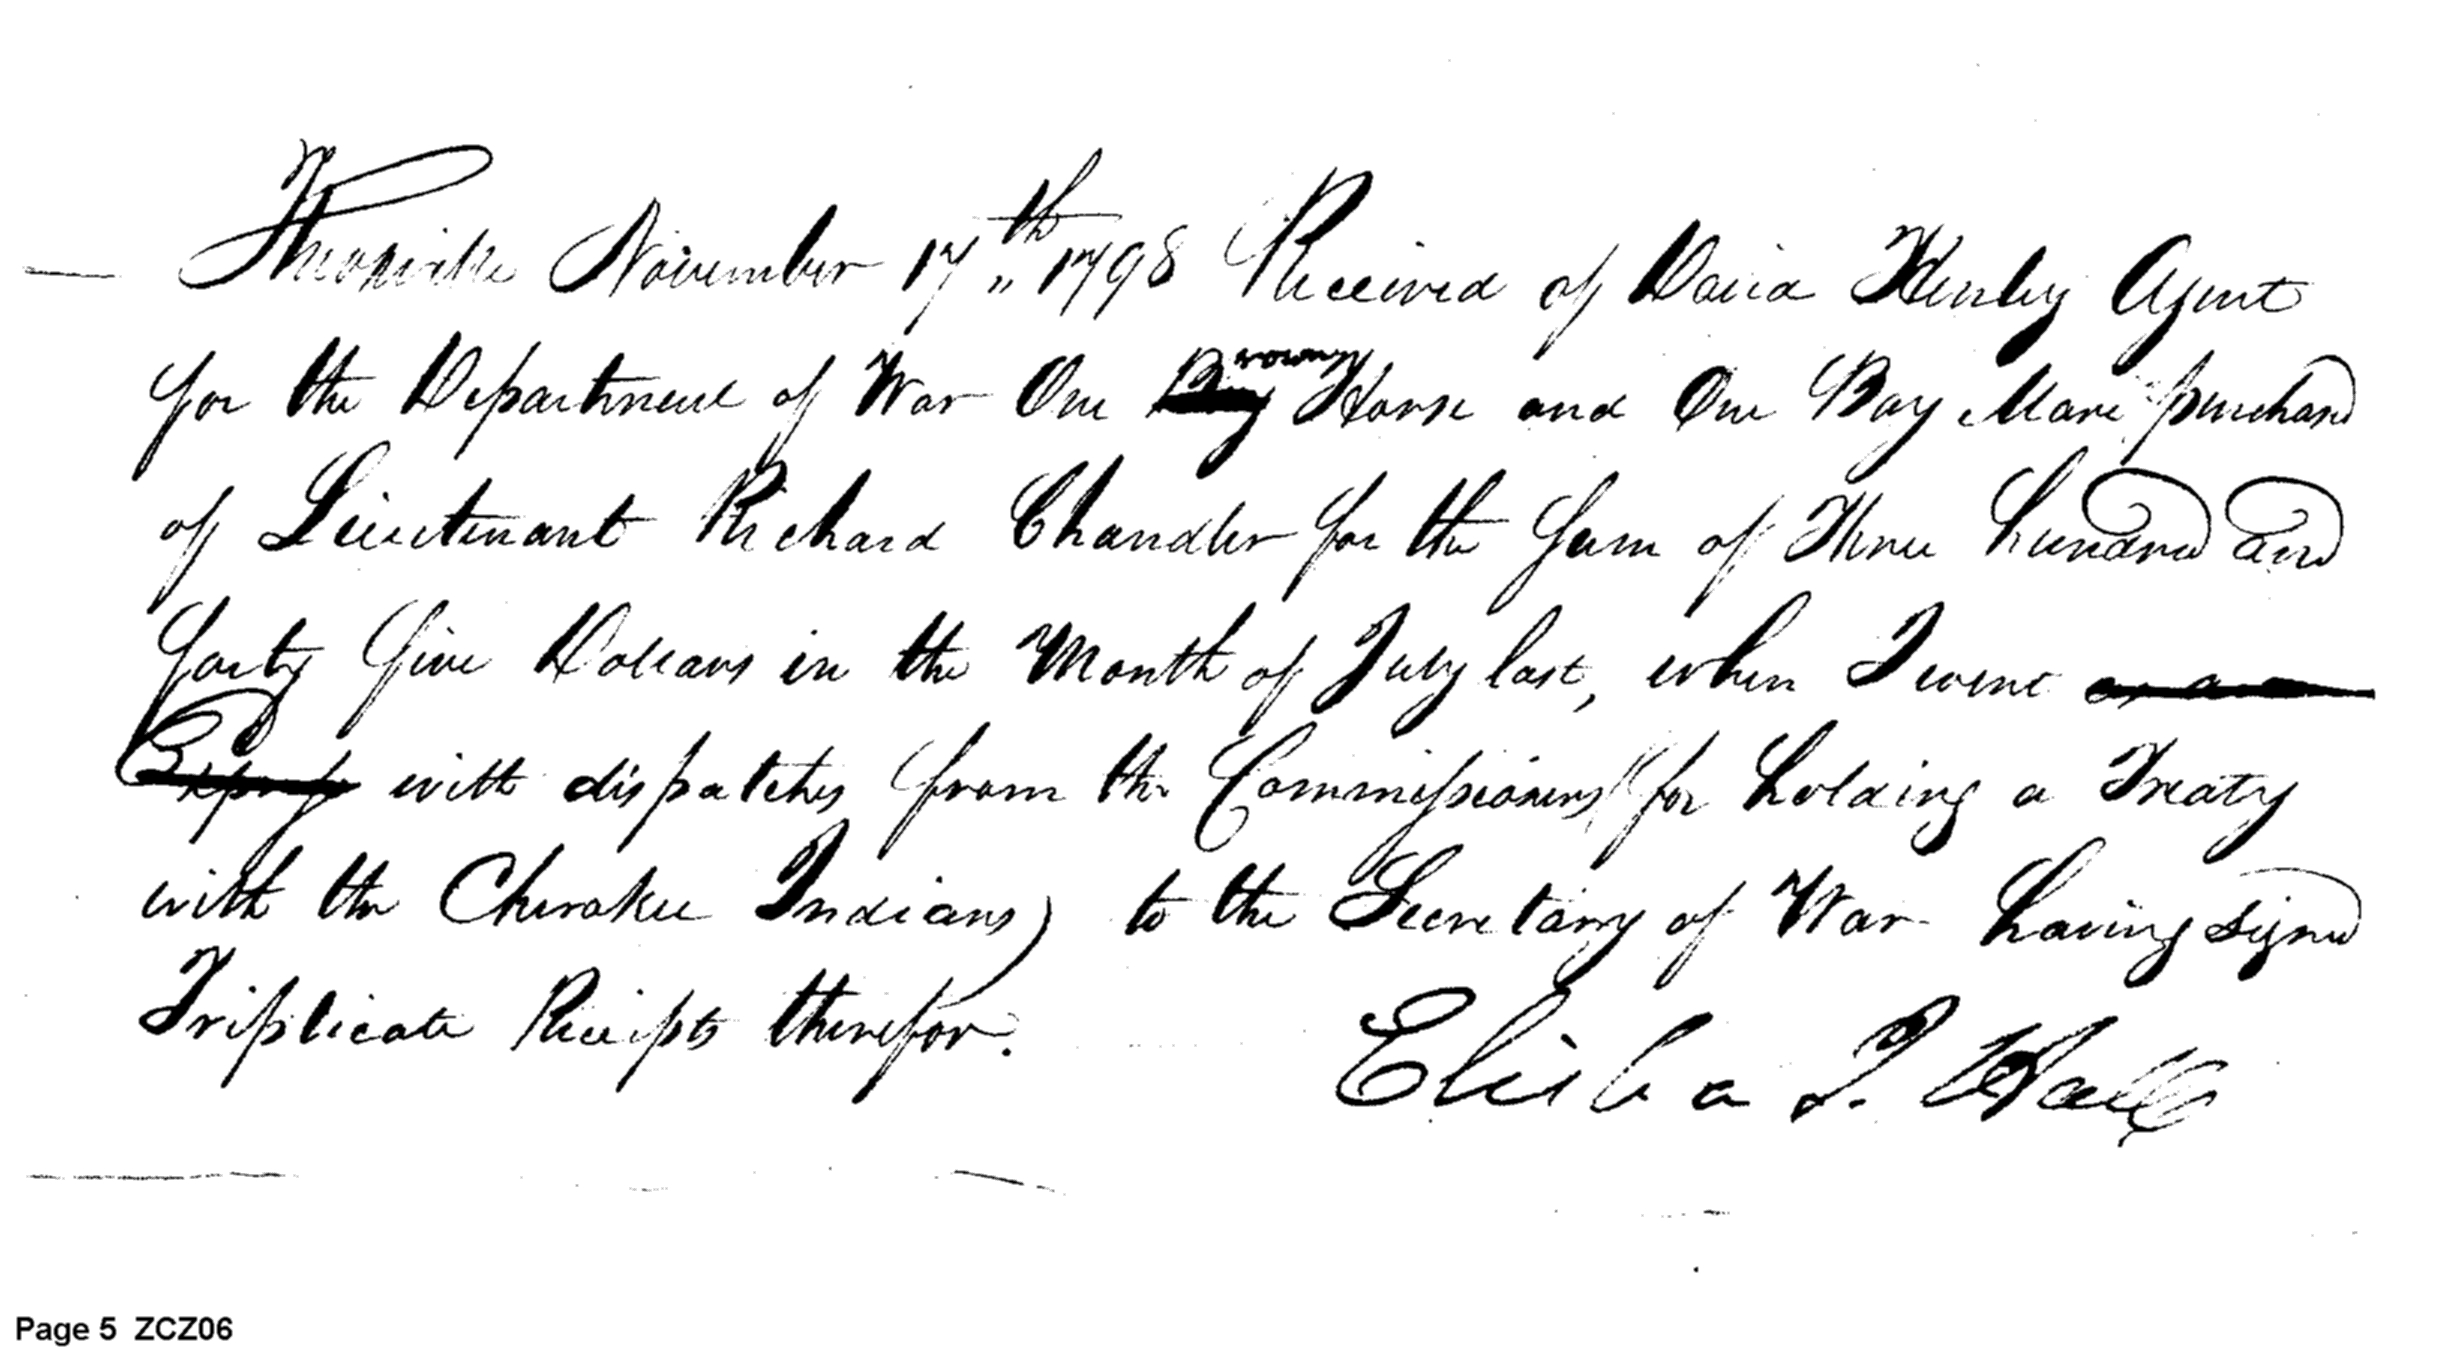 Knoxville November 17th 1798 Received of David Henley Agent
for the Department of War One Brown Horse and One Bay Mare purchased
of Lieutenant Richard Chandler for the Sum of Three hundred and
forty five Dollars in the Month of July last, when I went as an
Express with dispatches from the Commissioners (for holding a Treaty
with the Cherokee Indians) to the Secretary of War having signed
Triplicate Receipts therefor.
Elisha I. Hall
Page 5 ZCZ06